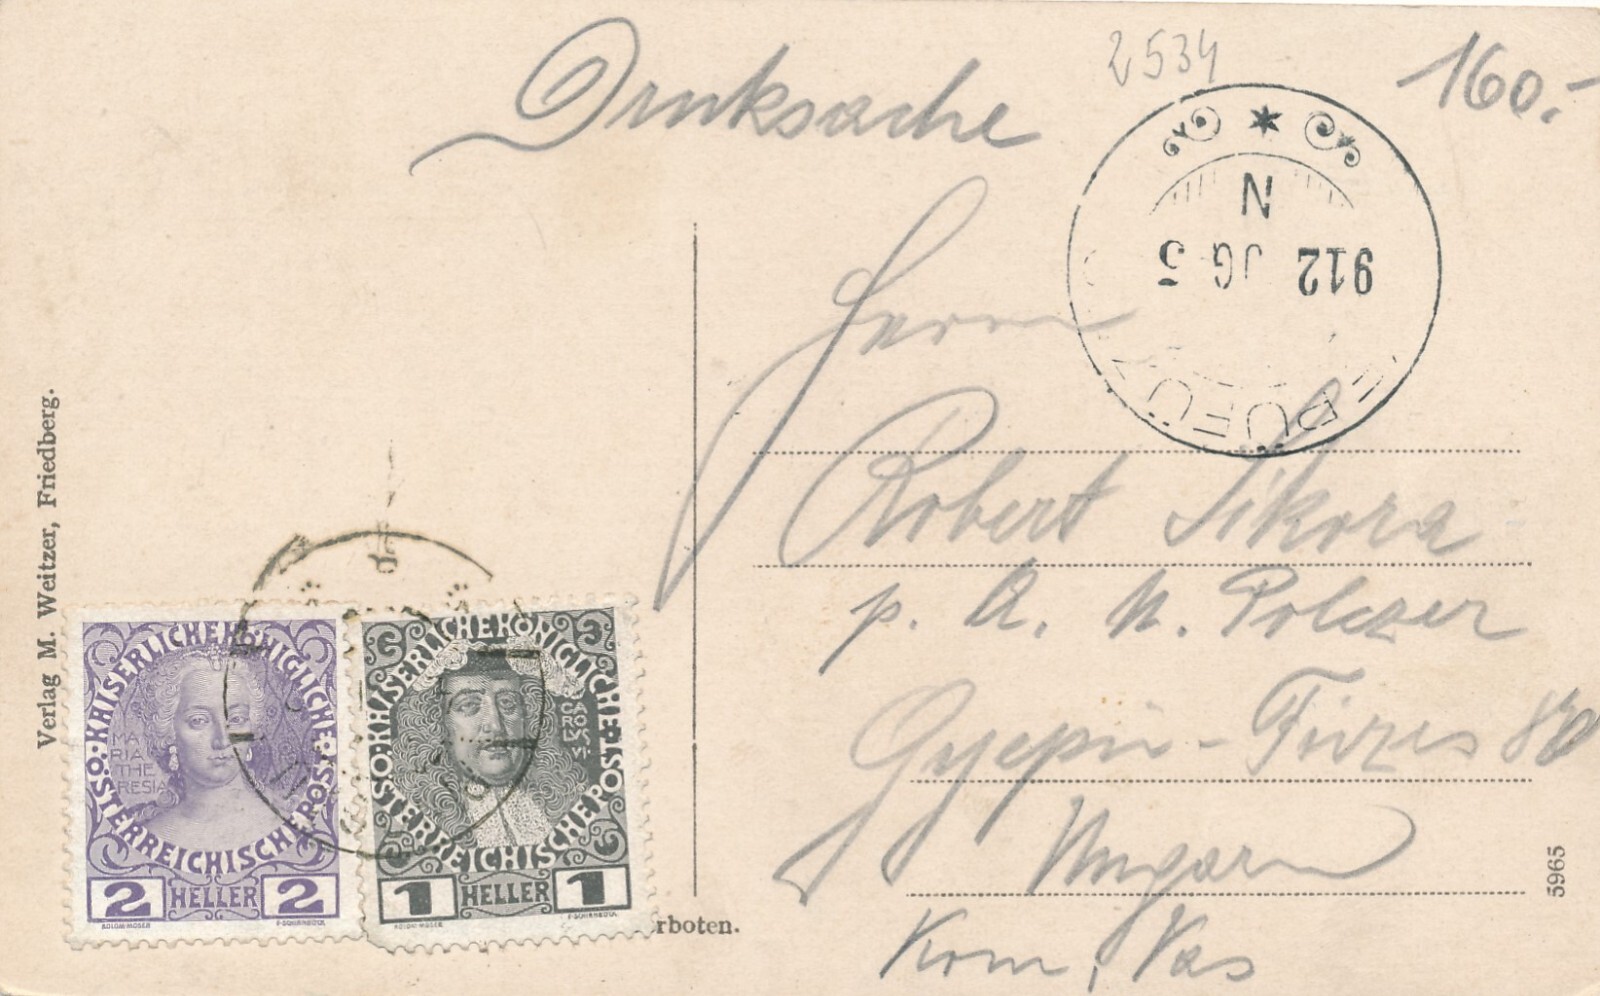 Drucksache
2534
160.-
N
912 JG 5
Herrn
Robert Sikora
p. A. N. Polczer
Gyepü-Füzes 80
Ungarn
Kom. Vas
Verlag M. Weitzer, Friedberg.
5965
KAISERLICHE KÖNIGLICHE ÖSTERREICHISCHE POST
MARIA THERESIA
2 HELLER 2
KOLOM·MOSER F·SCHIRNBÖCK
KAISERLICHE KÖNIGLICHE ÖSTERREICHISCHE POST
CAROLVS VI
1 HELLER 1
KOLOM·MOSER F·SCHIRNBÖCK
rboten.